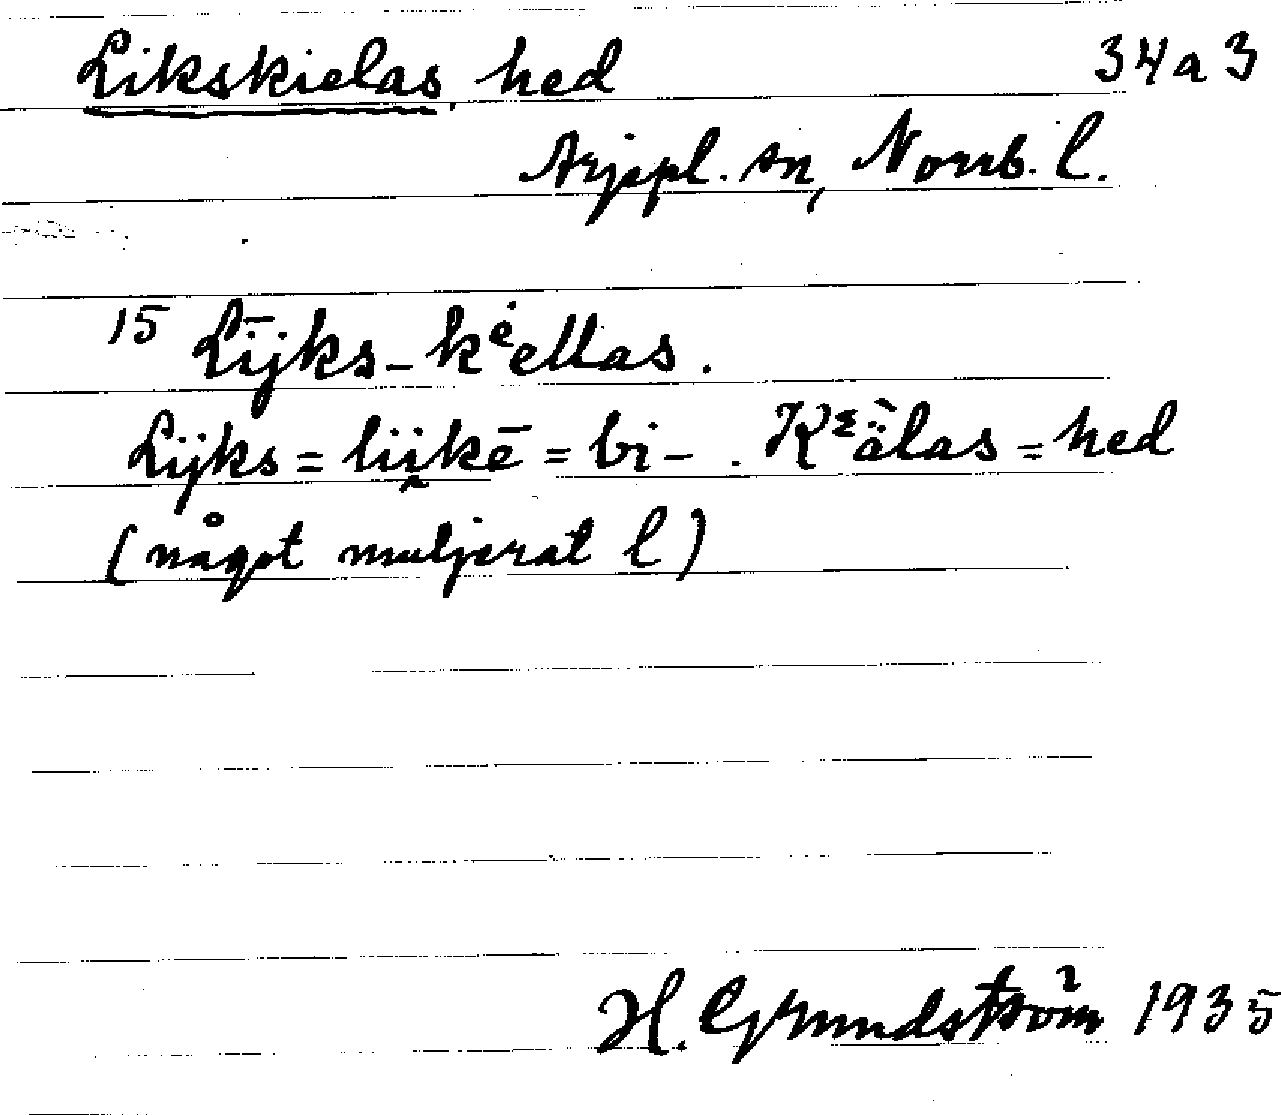 Likskielas, hed 34a3
Arjepl. sn, Norrb. l.
15 Lījks-kėellas.
Lijks = liikē = bi- . Kᵋälas = hed
(något muljerat l)
H. Grundström 1935